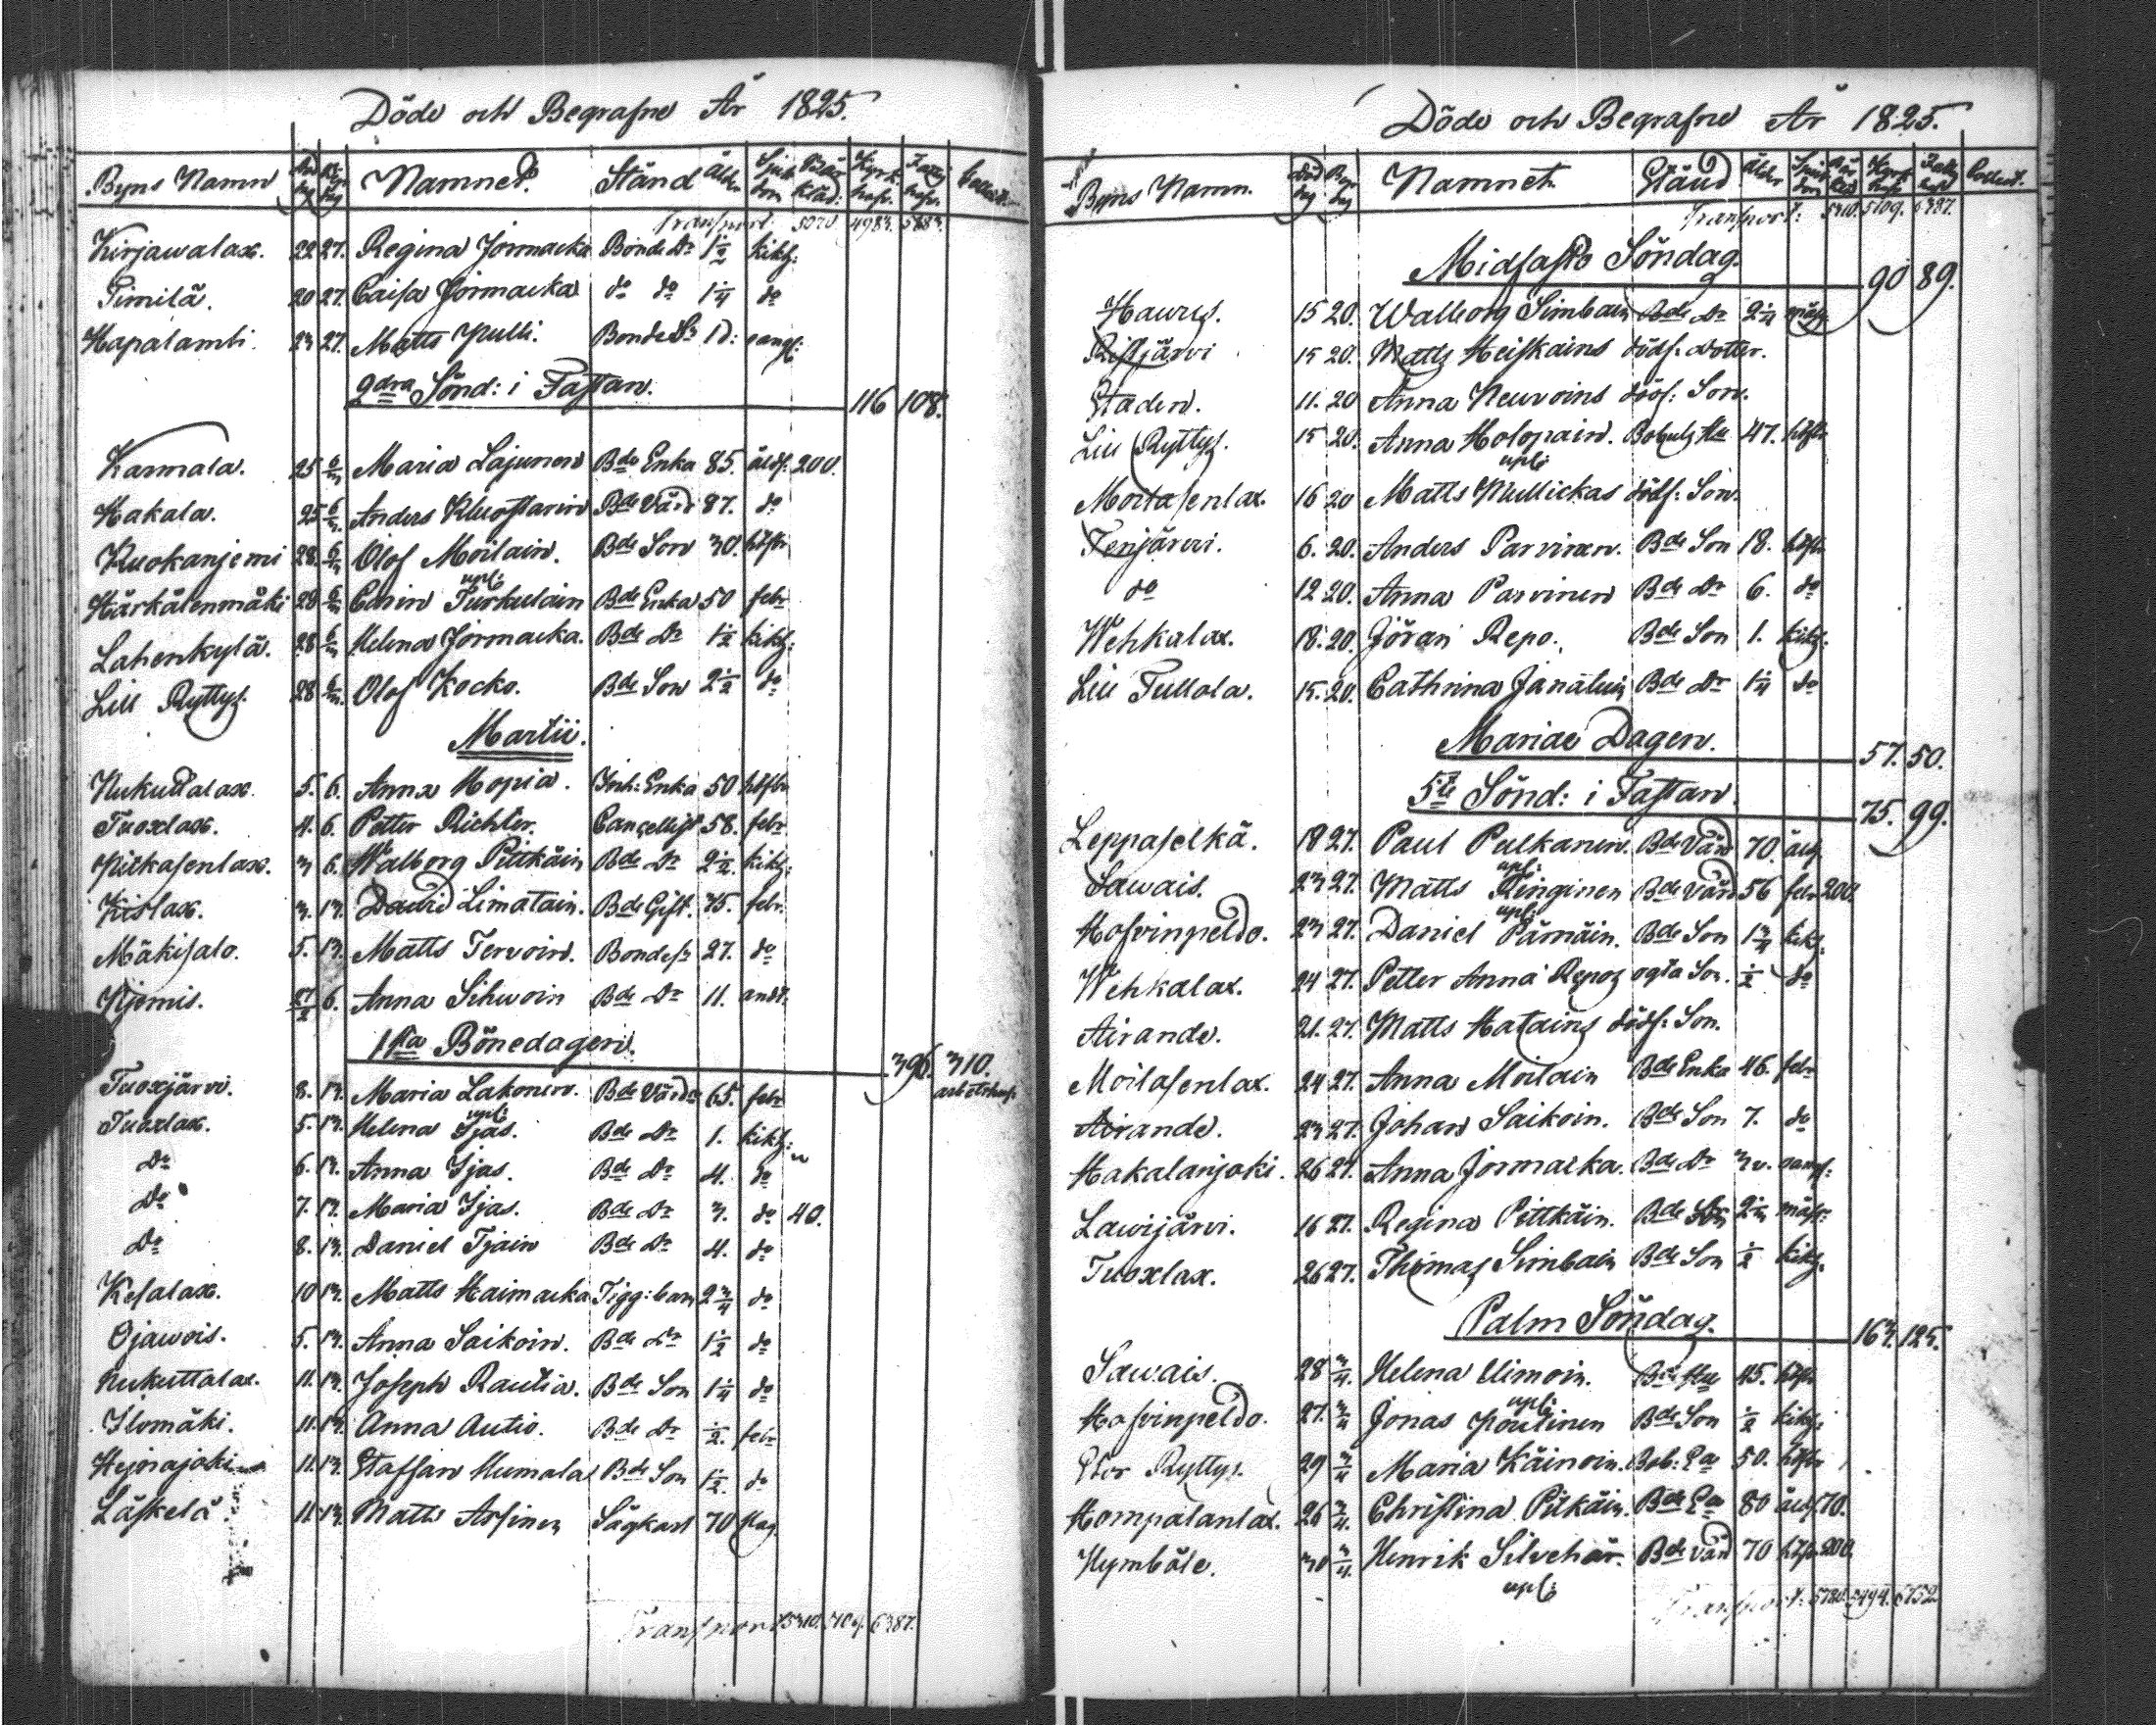 Döde och Begrafne År 1825.
Byns Namn Namnet. Stånd Åld.
Transport: 4983. 5883.
Kirjawalax. 22 27. Regina Jormacka Bonde Dr 1½ kikh:
Pimilä. 20 27. Caisa Jormacka do do 1¼ do
Hapalambi. 23 27. Matts Pulli. Bonde Sn
2dra Sönd: i Fastan. 116 108.
Karmala. 25 6/3 Maria Lajunen Bde Enka 85. åldh: 200.
Hakala. 25 6/3 Anders Kluostarin Bde Värd 87. do
Kuokanjemi 28. 6/3 Olof Moilain. Bde Son 30. höftn
upl:
Härkälenmäki 28 6/3 Carin Turkulain Bde Enka 50 febr
Lahenkylä. 28 6/3 Helena Jormacka. Bde Dr 1½ kikh:
Lill Ryttys. 28 6/3 Olof Kocko. Bde Son 2½ do
Martii.
Nukuttalax. 5. 6. Anna Hopia. Inh: Enka 50 höftn
Tuoxlax. 4. 6. Petter Richter. Cancellist 58. febr
Pitkasenlax. 3 6. Walborg Pittkäin Bde Dr 2½. kikh:
Kislax. 3. 13. David Limatain. Bde Gift. 75. febr.
Mäkisalo. 5. 13. Matts Tervoin. Bondesn 27. do
Kjemis. 27/2 6. Anna Sihwoin Bde Dr 11. andt.
1sta Bönedagen. 396. 310.
Tuoxjärvi. 8. 13. Maria Lakonen. Bde Värda 65. febr
upl:
Tuoxlax. 5. 13. Helena Ijas. Bde Dr 1. kikh:
Do 6. 13. Anna Ijas. Bde Dr 4. do
Do 7. 13. Maria Ijas. Bde Dr 3. do 40.
Do 8. 13. Daniel Ijain Bde Dr 4. do
Kesalax. 10 13. Matts Haimacka Tigg: barn 2¾ do
Ojawois. 5. 13. Anna Saikoin. Bde Dr 1½ do
Nukuttalax. 11. 13. Joseph Rautia. Bde Son 1¼ do
Ilomäki. 11. 13. Anna Autio. Bde Dr ½. febr
Hejnajoki 11. 13. Staffan Humala Bde Son 1½. do
Läskelä. 11. 13. Matts Arsinen Sågkarl 70 slag.
Transport 5310. 5109. 6387.
Döde och Begrafne År 1825.
Byns Namn. Död dag Namnet. Stånd Ålder Collect.
Transport: 5310. 5109. 6387.
Midfasto Söndag. 90 89.
Haurus. 15 20. Walborg Simbain Bde Dr 2¼
Ristjärvi 15 20. Matts Heiskains dödf: dotter.
Staden. 11. 20 Anna Neuvoins dödf: Son.
Lill Ryttys. 15 20. Anna Holopain. 47. höftn
upl:
Moilasenlax. 16 20 Matts Mullickas dödf: Son.
Tenjärvi. 6. 20. Anders Parvinen. Bde Son 18. höftn
do 12 20. Anna Parvinen Bde Dr 6. do
Wehkalax. 18. 20. Jöran Repo. Bde Son 1. kikh:
Lill Tullola. 15. 20. Cathrina Janatuin Bde Dr 1¼ do
Mariae Dagen. 57. 50.
5te Sönd: i Fastan. 75. 99.
Leppaselkä. 19 27. Paul Pulkanen. Bde Värd 70.
upl:
Sawais. 23 27. Matts Ringinen Bde Värd 56 febr 200.
upl:
Hofvinpeldo. 23 27. Daniel Pärnäin. Bde Son 1¾ kikh:
Wehkalax. 24 27. Petter Anna Repos ogta Son. ½ do
Airande. 21. 27. Matts Hatains dödf: Son.
Moilasenlax. 24 27. Anna Moilain Bde Enka 46. febr
Airande. 23 27. Johan Saikoin. Bde Son 7. do
Hakalanjoki. 26 27. Anna Jormacka. Bde Dr 3 v.
Lawijärvi. 16 27. Regina Pittkäin. Bde Dr 2¼ mäsl:
Tuoxlax. 26 27. Thomas Simbain Bde Son ½ kikh.
Palm Söndag. 163. 125.
Sawais. 28 3/4. Helena Uimoin. Bde Hu 45. höftn
upl:
Hofvinpeldo. 27. 3/4 Jonas Poutinen Bde Son ½ kikh:
Stor Ryttys. 29 3/4 Maria Käinoin. Bob: Ea 50. höftn
Hompalanlax. 26 3/4. Christina Pitkäin. Bde Ea 80 70.
Hymböle. 30 3/4. Henrik Silvehär. Bde Värd 70 200.
upl:
Transport: 5780. 5494. 6752.